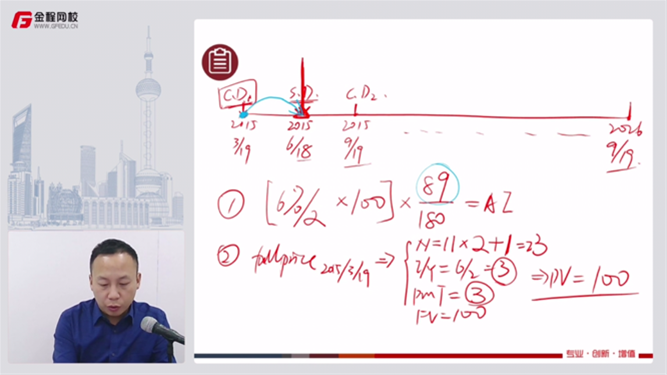 金程网校
WWW.GFEDU.CN
C.D₁ S.D. C.D₂
2015 2015 2015 2026
3/19 6/18 9/19 9/19
① [6%/2 ×100] × 89/180 = AI
② full price 2015/3/19 ⇒ { N=11×2+1=23
I/Y=6/2=③
PMT=③ ⇒ PV=100
FV=100
专业·创新·增值